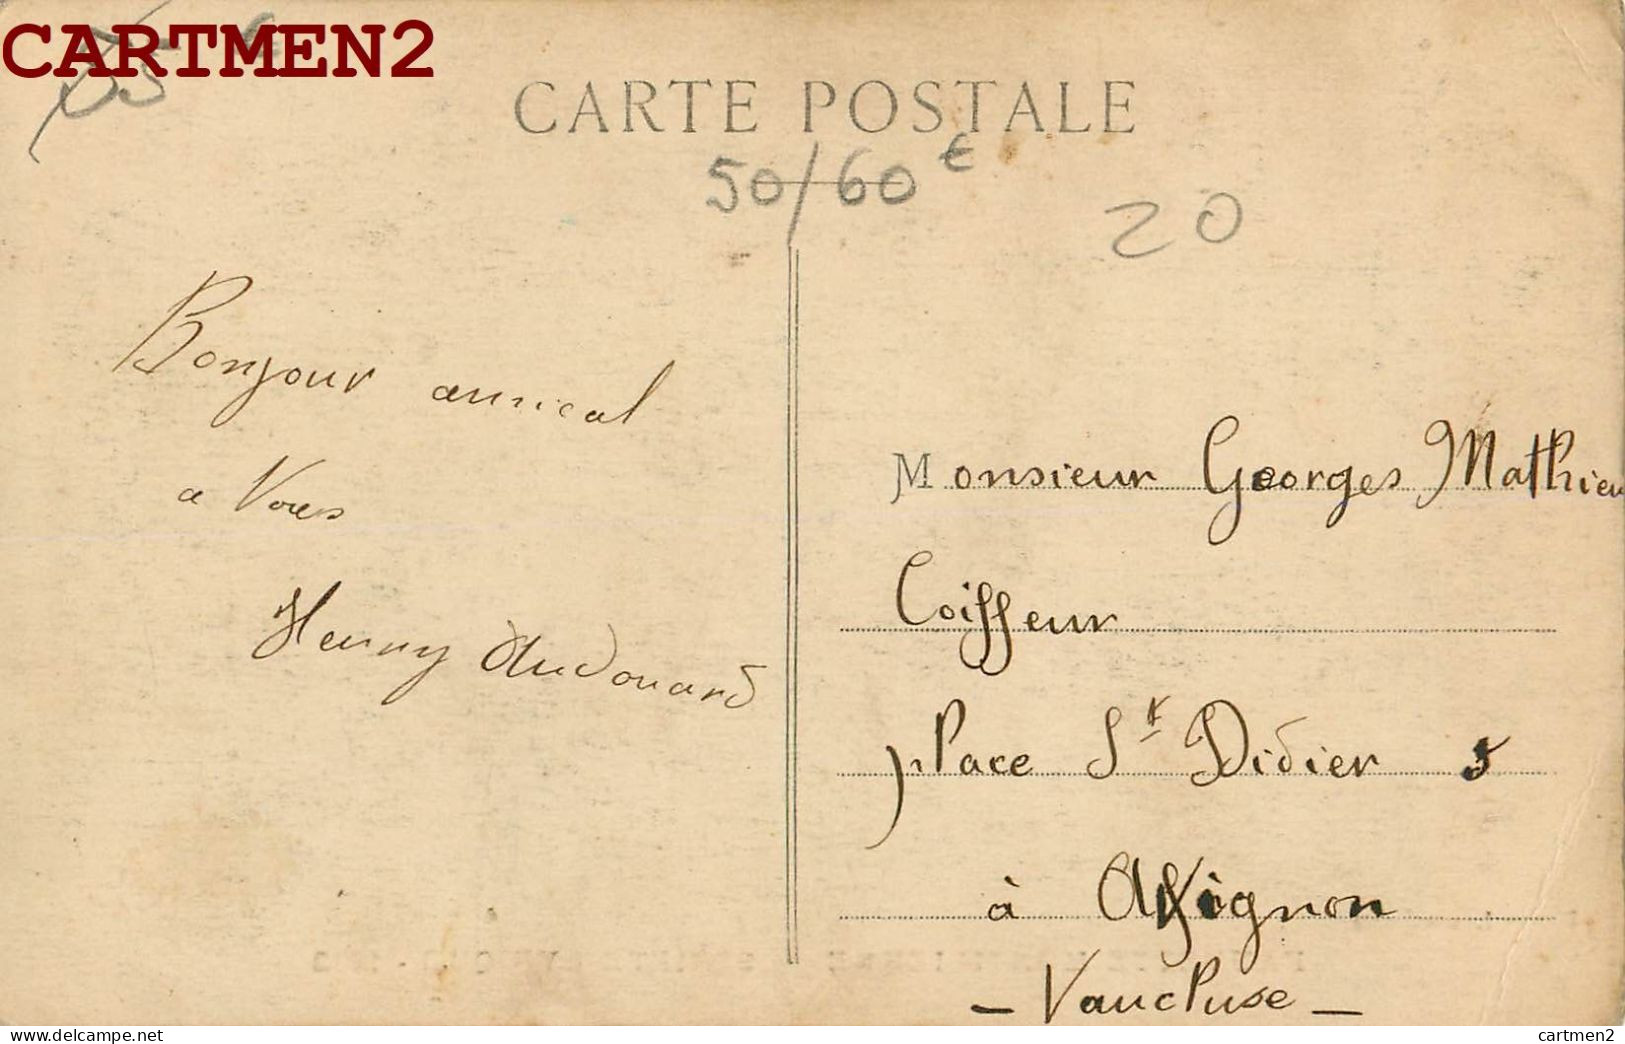 CARTMEN2
CARTE POSTALE
50/60 €
20
Bonjour amical
a Vous
Henry Audouard
Monsieur Georges Mathieu
Coiffeur
Place St Didier 5
à Avignon
- Vaucluse -
cartmen2